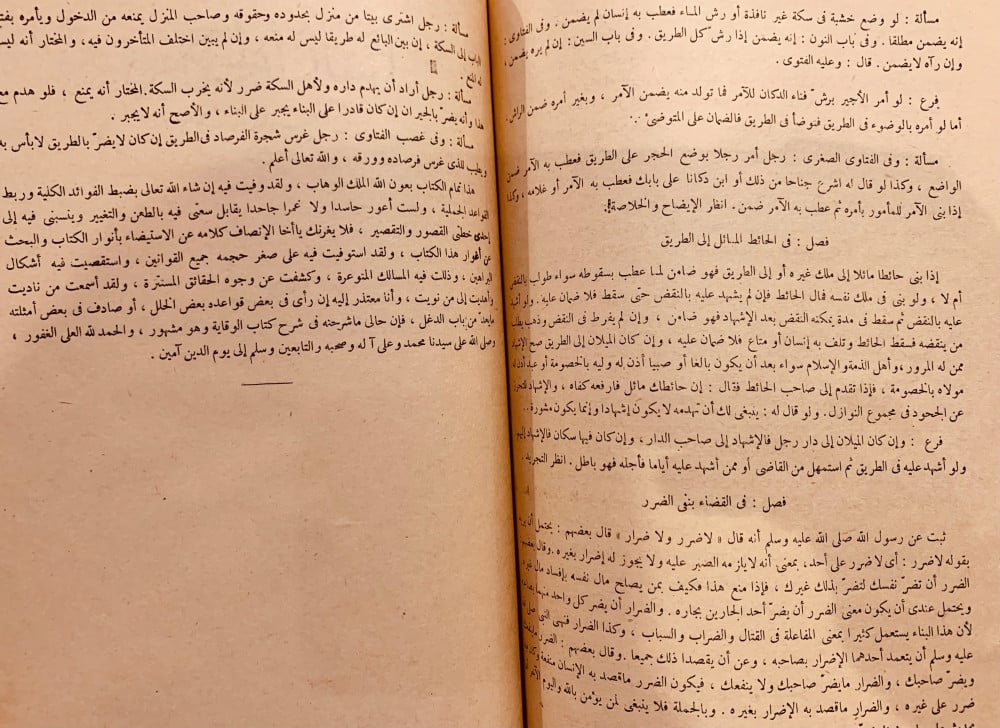 مسألة : لو وضع خشبة في سكة غير نافذة أو رش الماء فعطب به إنسان لم يضمن . وفى الفتاوى :
إنه يضمن مطلقا . وفى باب النون : إنه يضمن إذا رش كل الطريق . وفى باب السين : إن لم يره يضمن ،
وإن رآه لايضمن . قال : وعليه الفتوى .
فرع : لو أمر الأجير برش فناء الدكان للآمر فما تولد منه يضمن الآمر ، وبغير أمره ضمن الراش .
أما لو أمره بالوضوء فى الطريق فتوضأ فى الطريق فالضمان على المتوضئ .
مسألة : وفى الفتاوى الصغرى : رجل أمر رجلا بوضع الحجر على الطريق فعطب به الآمر ضمن
الواضع ، وكذا لو قال له اشرع جناحا من ذلك أو ابن دكانا على بابك فعطب به الآمر أو غلامه ، وكذا
إذا بنى الآمر للمأمور بأمره ثم عطب به الآمر ضمن . انظر الإيضاح والخلاصة .
فصل : فى الحائط المائل إلى الطريق
إذا بنى حائطا مائلا إلى ملك غيره أو إلى الطريق فهو ضامن لما عطب بسقوطه سواء طولب بالنقض
أم لا ، ولو بنى فى ملك نفسه فمال الحائط فإن لم يشهد عليه بالنقض حتى سقط فلا ضمان عليه . ولو أشهد
عليه بالنقض ثم سقط فى مدة يمكنه النقض بعد الإشهاد فهو ضامن ، وإن لم يفرط فى النقض وذهب يطلب
من ينقضه فسقط الحائط وتلف به إنسان أو متاع فلا ضمان عليه ، وإن كان الميلان إلى الطريق صح الإشهاد
ممن له المرور ، وأهل الذمة والإسلام سواء بعد أن يكون بالغا أو صبيا أذن له وليه بالخصومة أو عبد أذن له
مولاه بالخصومة ، فإذا تقدم إلى صاحب الحائط فقال : إن حائطك مائل فارفعه كفاه ، والإشهاد للتحرز
عن الجحود فى مجموع النوازل . ولو قال له : ينبغى لك أن تهدمه لا يكون إشهادا وإنما يكون مشورة .
فرع : وإن كان الميلان إلى دار رجل فالإشهاد إلى صاحب الدار ، وإن كان فيها سكان فالإشهاد إليهم
ولو أشهد عليه فى الطريق ثم استمهل من القاضى أو ممن أشهد عليه أياما فأجله فهو باطل . انظر التجريد .
فصل : فى القضاء بنفى الضرر
ثبت عن رسول الله صلى الله عليه وسلم أنه قال « لاضرر ولا ضرار » قال بعضهم : يحتمل أن يريد
بقوله لاضرر : أى لاضرر على أحد ، بمعنى أنه لايلزمه الصبر عليه ولا يجوز له إضرار بغيره . وقال بعضهم
الضرر أن تضر نفسك لتضر بذلك غيرك ، فإذا منع هذا فكيف بمن يصلح مال نفسه بإفساد مال غيره
ويحتمل عندى أن يكون معنى الضرر أن يضر أحد الجارين بجاره . والضرار أن يضر كل واحد منهما
لأن هذا البناء يستعمل كثيرا بمعنى المفاعلة فى القتال والضراب والسباب ، وكذا الضرار فنهى النبى صلى الله
عليه وسلم أن يتعمد أحدهما الإضرار بصاحبه ، وعن أن يقصدا ذلك جميعا . وقال بعضهم : الضرر
ويضر صاحبك ، والضرار مايضر صاحبك ولا ينفعك ، فيكون الضرر ماقصد به الإنسان منفعة
ضرر على غيره ، والضرار ماقصد به الإضرار بغيره . وبالجملة فلا ينبغى لمن يؤمن بالله واليوم الآخر
مسألة : رجل اشترى بيتا من منزل بحدوده وحقوقه وصاحب المنزل يمنعه من الدخول ويأمره بفتح
الباب إلى السكة ، إن بين البائع له طريقا ليس له منعه ، وإن لم يبين اختلف المتأخرون فيه ، والمختار أنه ليس
له المنع .
مسألة : رجل أراد أن يهدم داره ولأهل السكة ضرر لأنه يخرب السكة . المختار أنه يمنع ، فلو هدم مع
هذا وأنه يضر بالجيران إن كان قادرا على البناء يجبر على البناء ، والأصح أنه لايجبر .
مسألة : وفى غصب الفتاوى : رجل غرس شجرة الفرصاد فى الطريق إن كان لايضر بالطريق لابأس به
ويطيب للذى غرس فرصاده وورقه ، والله تعالى أعلم .
هذا تمام الكتاب بعون الله الملك الوهاب ، ولقد وفيت فيه إن شاء الله تعالى بضبط الفوائد الكلية وربط
القواعد الجملية ، ولست أعور حاسدا ولا غمرا جاحدا يقابل سعى فيه بالطعن والتغيير وينسبنى فيه إلى
إحدى خطتى القصور والتقصير ، فلا يغرنك ياأخا الإنصاف كلامه عن الاستيضاء بأنوار الكتاب والبحث
عن أغوار هذا الكتاب ، ولقد استوفيت فيه على صغر حجمه جميع القوانين ، واستقصيت فيه أشكال
البراهين ، وذللت فيه المسالك المتوعرة ، وكشفت عن وجوه الحقائق المستترة ، ولقد أسمعت من ناديت
وأهديت إلى من نويت ، وأنا معتذر إليه إن رأى فى بعض قواعده بعض الخلل ، أو صادف فى بعض أمثلته
مايعد من باب الدغل ، فإن حالى ماشرحته فى شرح كتاب الوقاية وهو مشهور ، والحمد لله العلى الغفور ،
وصلى الله على سيدنا محمد وعلى آله وصحبه والتابعين وسلم إلى يوم الدين آمين .